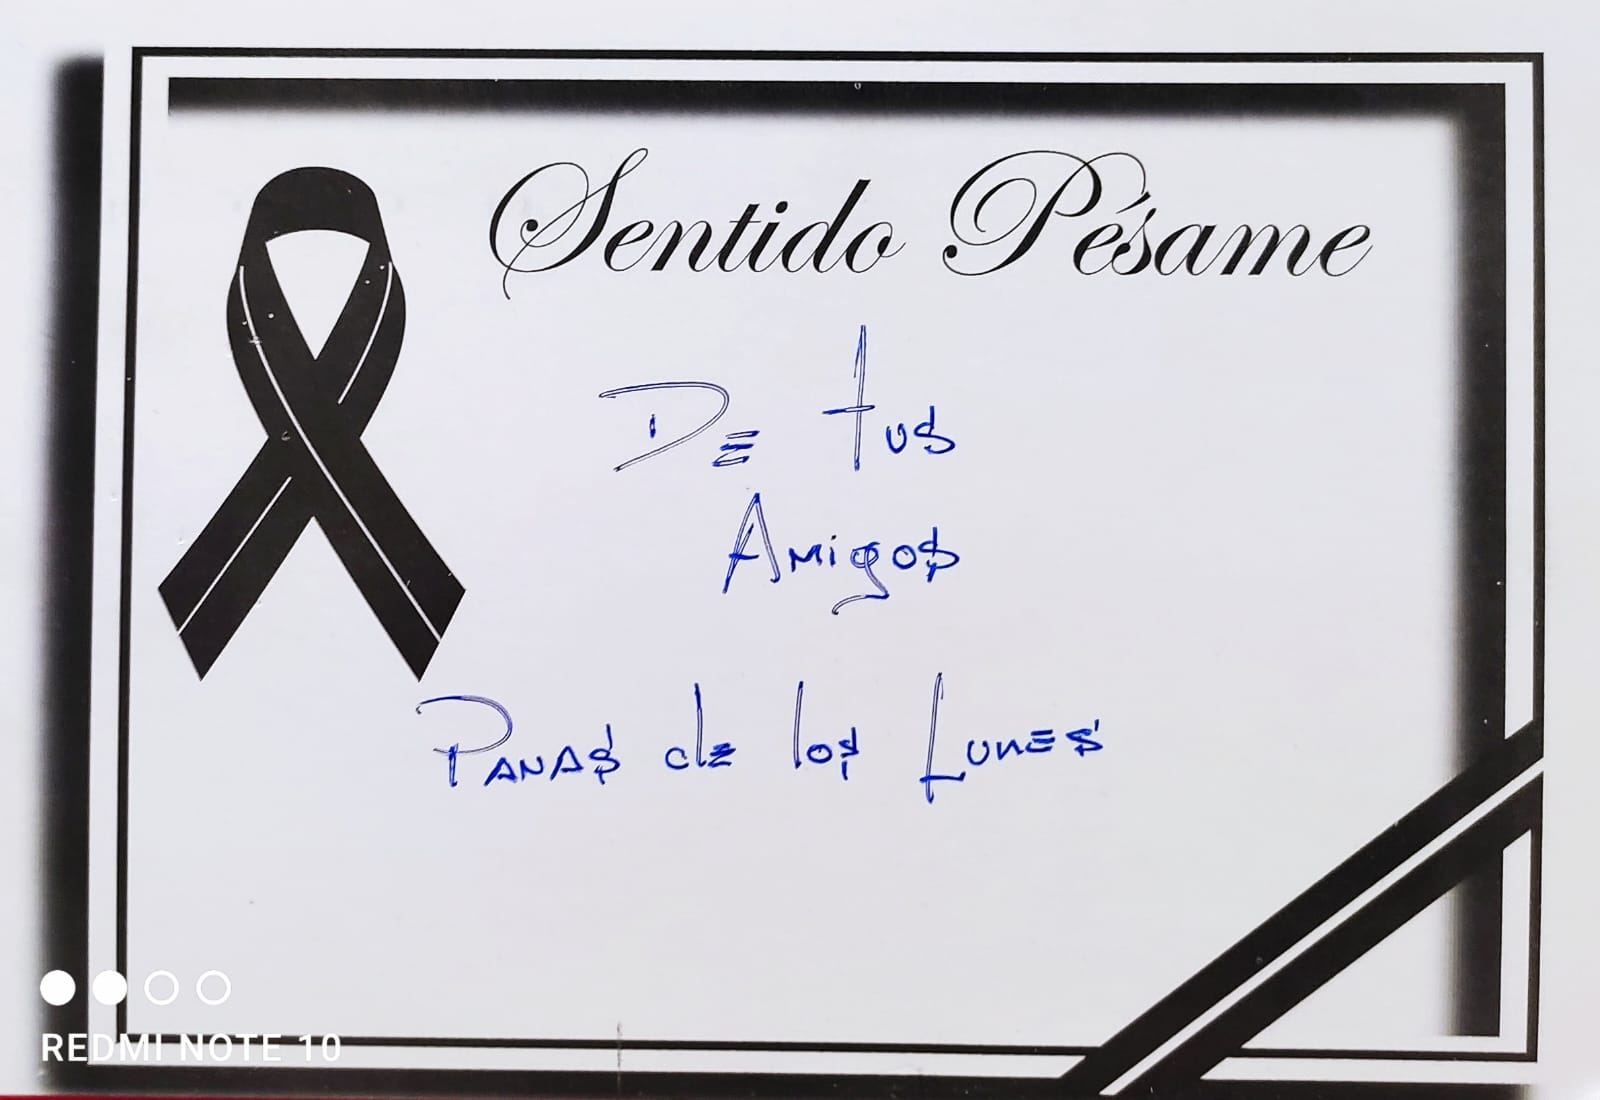 Sentido Pésame
De tus
Amigos
Panas de los Lunes
REDMI NOTE 10